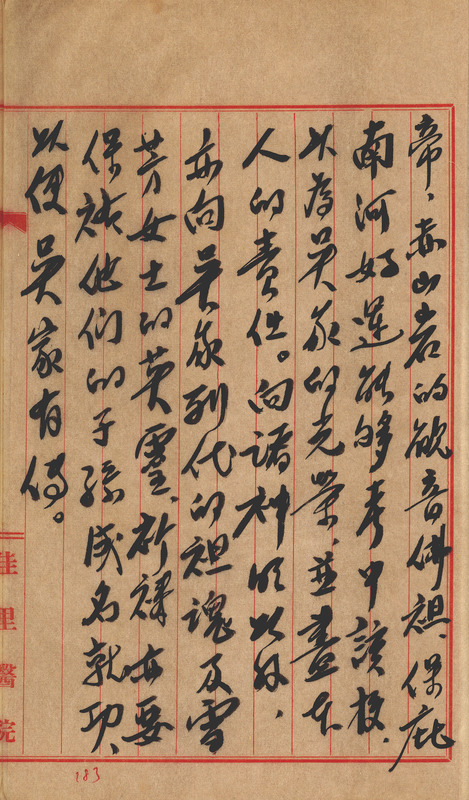 帝、赤山岩的觀音佛祖、保庇
南河好運能够考中該校、
以為吳家的光榮、並盡本
人的責任。向諸神明以外、
亦向吳家列代的祖魂及雪
芳女士的英靈、祈禱亦要
保祐他們的子孫成名就功、
以便吳家有傳。
佳里醫院
183